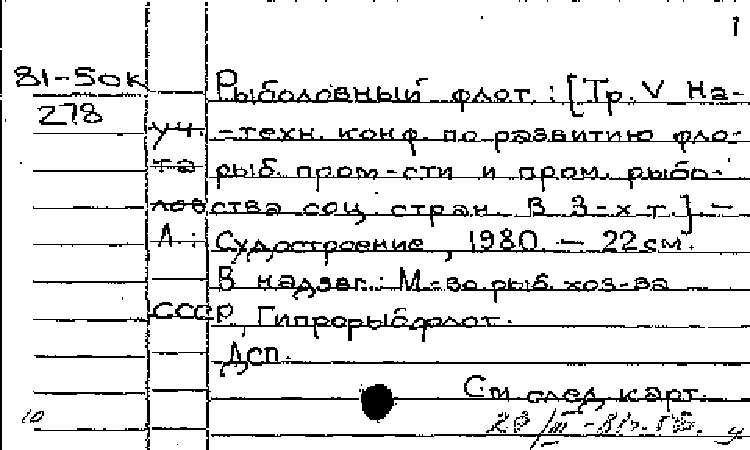 1
81-50к Рыболовный флот. : [Тр. V На-
278
уч.-техн. конф. по развитию фло-
та рыб. пром-сти и пром. рыбо-
ловства соц. стран. В 3-х т.]. -
Л. : Судостроение, 1980. - 22 см.
В надзаг.: М-во рыб. хоз-ва
СССР, Гипрорыбфлот.
Дсп.
См след карт.
10